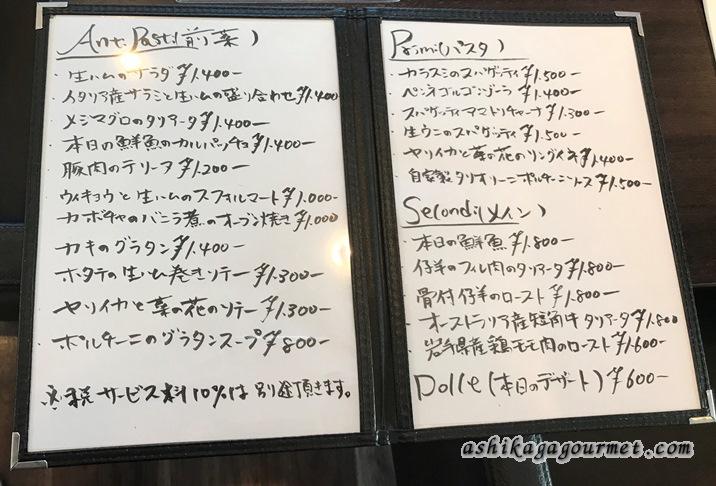 Anti Pasti(前菜)
・生ハムのサラダ ¥1.400-
・イタリア産サラミと生ハムの盛り合わせ ¥1.400
・メジマグロのタリアータ ¥1.400-
・本日の鮮魚のカルパッチョ ¥1.400-
・豚肉のテリーヌ ¥1.200-
・ウィキョウと生ハムのスフォルマート ¥1.000-
・カボチャのバニラ煮のオーブン焼き ¥1.000
・カキのグラタン ¥1.400-
・ホタテの生ハム巻きソテー ¥1.300-
・ヤリイカと菜の花のソテー ¥1.300-
・ポルチーニのグラタンスープ ¥800-
※税サービス料10%は別途頂きます。
Primi(パスタ)
・カラスミのスパゲッティ ¥1.500-
・ペンネゴルゴンゾーラ ¥1.400-
・スパゲッティアマトリチャーナ ¥1.300-
・生ウニのスパゲッティ ¥1.500-
・ヤリイカと菜の花のリングイネ ¥1.400-
・自家製タリオリーニポルチーニソース ¥1.500-
Secondi(メイン)
・本日の鮮魚 ¥1.800-
・仔羊のフィレ肉のタリアータ ¥1.800-
・骨付仔羊のロースト ¥1.800-
・オーストラリア産短角牛タリアータ ¥1.800
・岩手県産鶏モモ肉のロースト ¥1.600-
Dolce(本日のデザート) ¥600-
ashikagagourmet.com